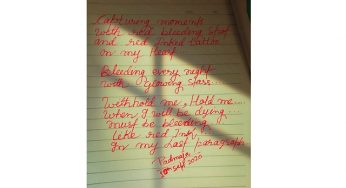 Capturing moments
With red bleeding spot
and red Inked Cattle
on my Heart
Bleeding every night
with Glowing Stars...
Withhold me, Hold me...
When I will be dying...
must be bleeding
like red Ink
In my Last paragraph
Padmaja
10th Sept 2020